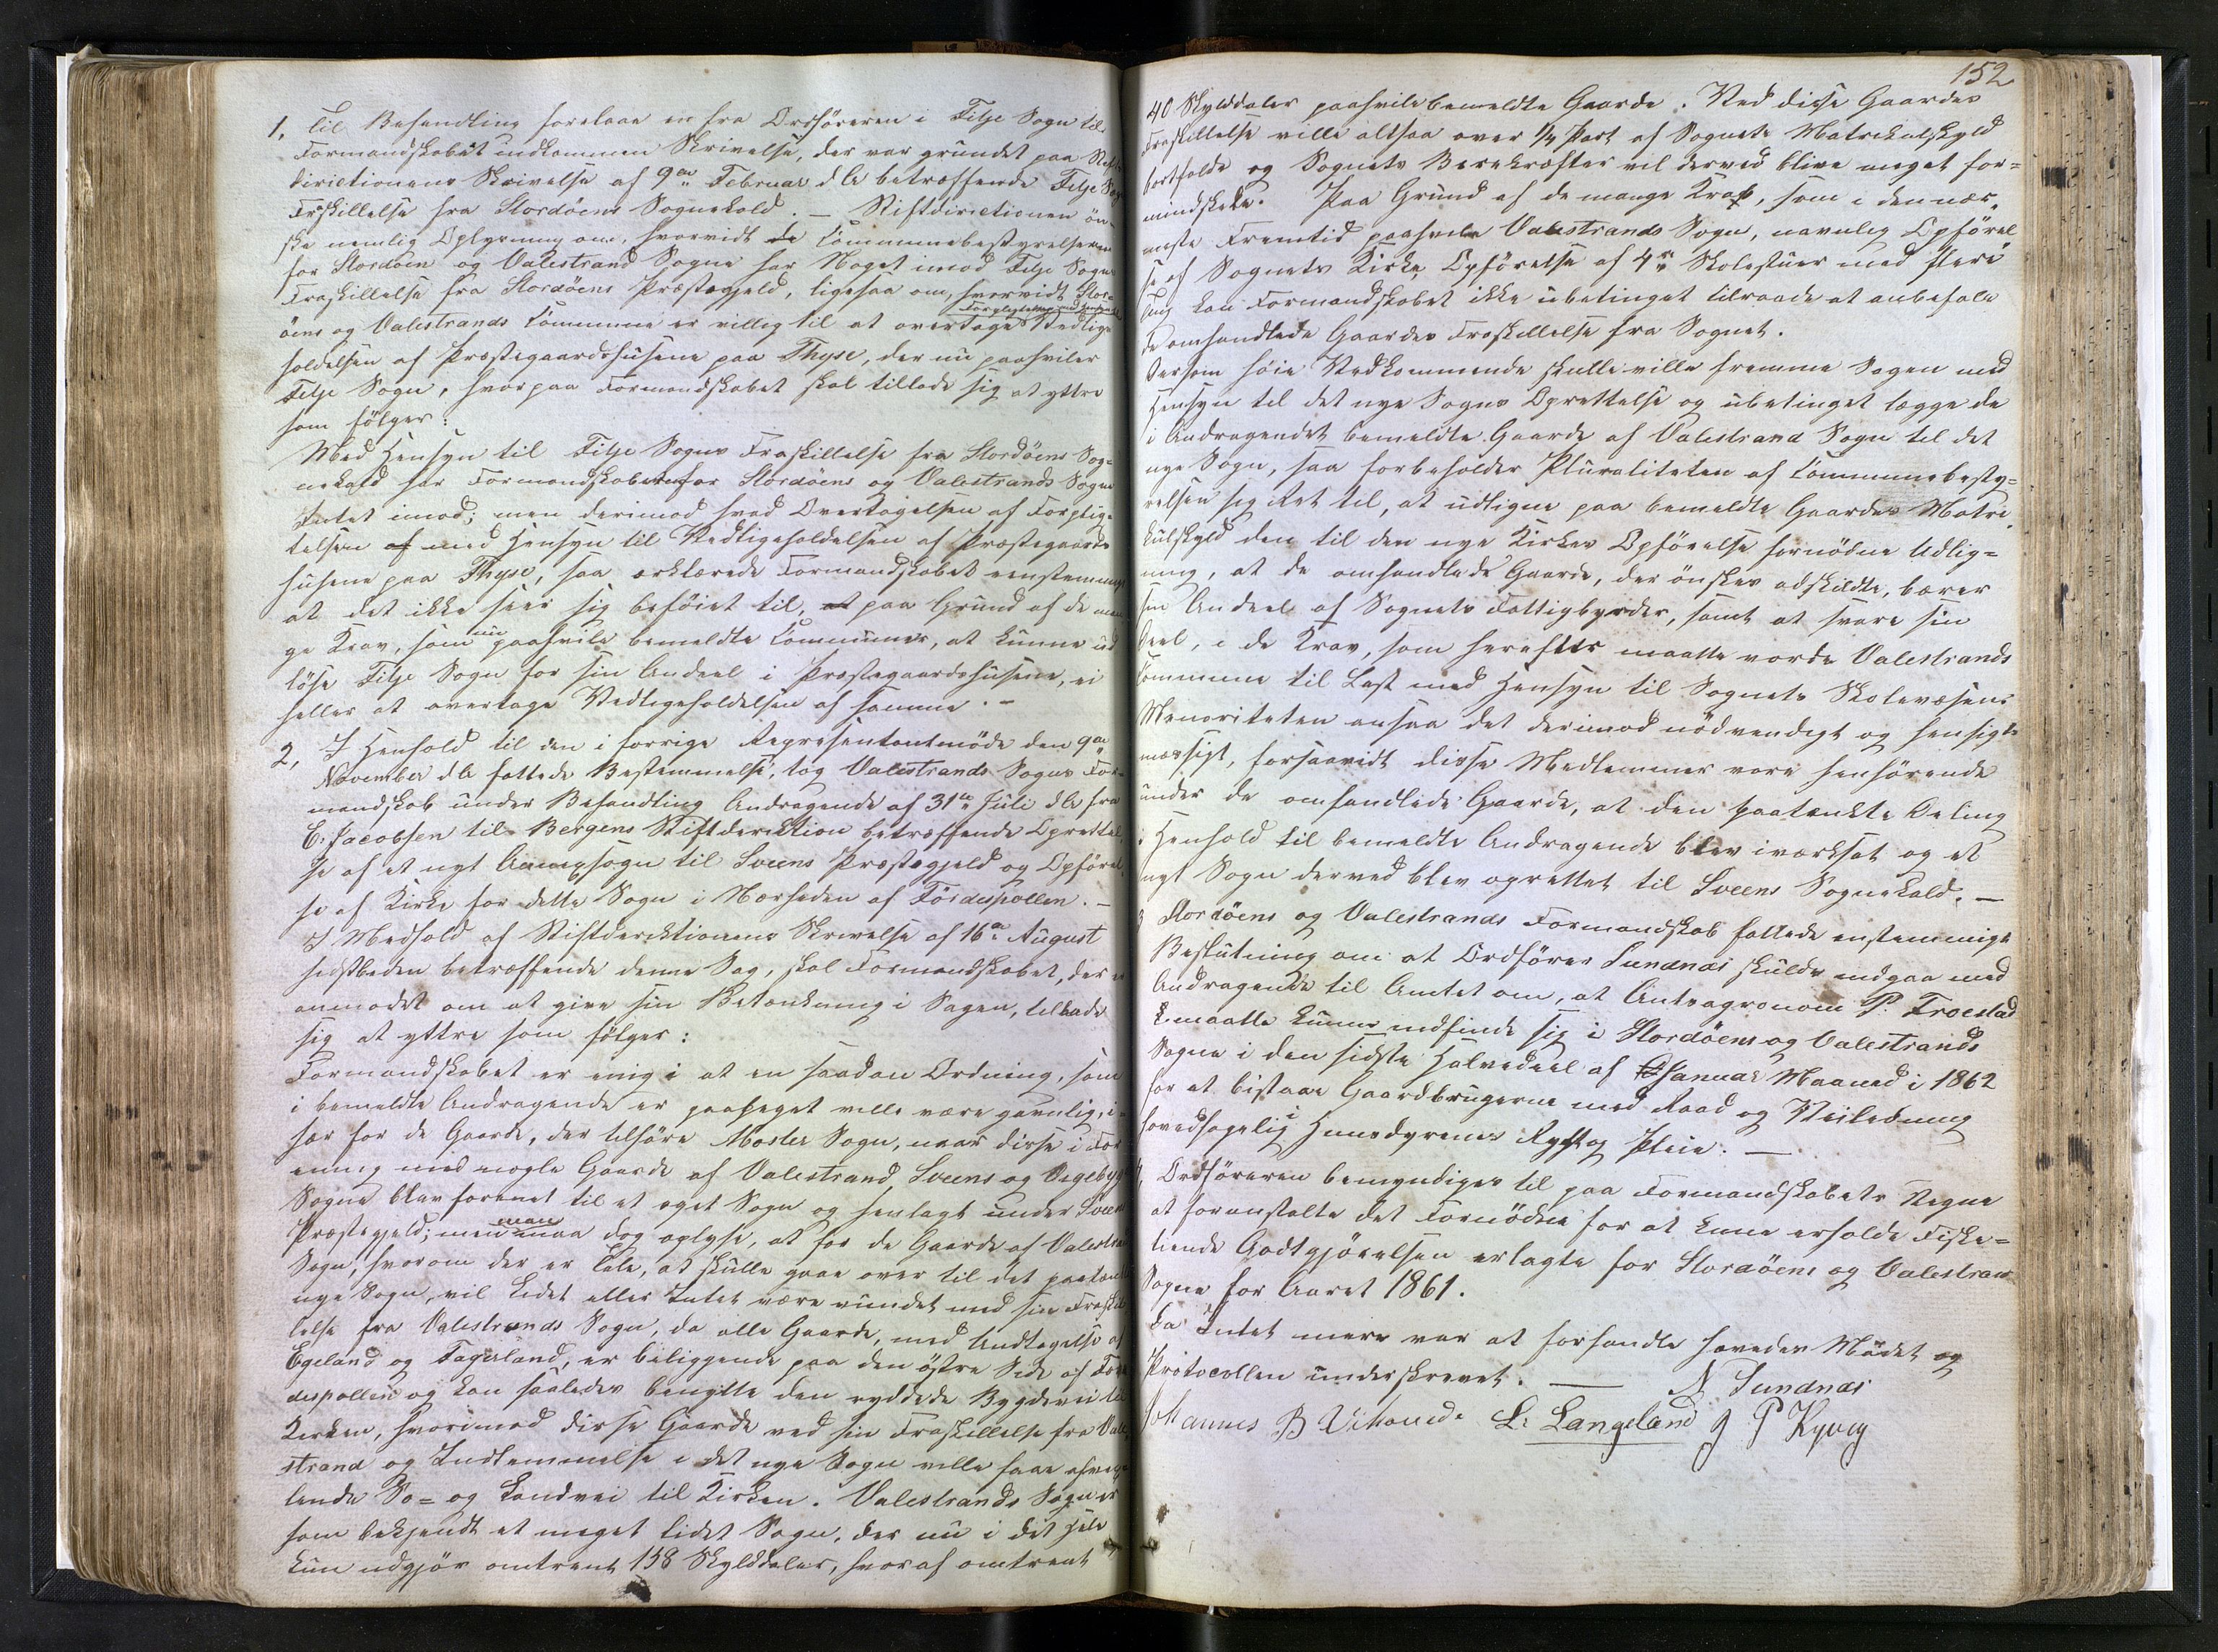 1, Til Behandling forelaae en fra Ordføreren i Fitje Sogn til
Formandskabet indkommen Skrivelse, der var grundet paa Stift
direktionens Skrivelse af 9de Februar d A betræffende Fitje Sogns
Fraskillelse fra Stordøens Sognekald. – Stiftdirectionen øn-
ske nemlig Oplysning om, hvorvidt de Commmunebestyrelserne
for Stordøen og Valestrand Sogne har Noget imod Fitje Sogns
Fraskillelse fra Stordøens Præstegjeld, ligesaa om, hvorvidt Stord-
øens og Valestrands Commune er villig til at overtage Vedlige
holdelsen af Præstegaardshusene paa Thyse, der nu paahviler
Fitje Sogn, hvorpaa Formandskabet skal tillade sig at yttre
som følger:
Med Hensyn til Fitje Sogns Fraskillelse fra Stordøens Sog-
nekald har Formandskaberne for Stordøens og Valestrands Sogne
Intet imod; men derimod hvad Overtagelsen af Forplig-
telsen af med Hensyn til Vedligeholdelsen af Præstegaards
husene paa Thyse, saa erklærede Formandskabet eenstemmigt
at det ikke seer sig beføiet til, at paa Grund af de man
ge Krav, som nu paahvile bemeldte Communer, at kunne ud
løse Fitje Sogn for sin Andeel i Præstegaardshusene, ei
heller at overtage Vedligeholdelsen af samme. –
2, I Henhold til den i forrige Repræsentantmøde den 9de
November d A fattede Bestemmelse, tog Valestrands Sogns For-
mandskab under Behandling Andragende af 31te Juli d A fra
E. Jacobsen til Bergens Stiftdirektion betræffende Oprettel
se af et nyt Annexsogn til Sveens Præstegjeld og Opførel
se af Kirke for dette Sogn i Nærheden af Førdespollen. –
I Medhold af Stiftdirektionens Skrivelse af 16de August
sidstleden betræffende denne Sag, skal Formandskabet, der er
anmodet om at give sin Betænkning i Sagen, tillade
sig at yttre som følger:
Formandskabet er enig i at en saadan Ordning, som
i bemeldte Andragende er paapeget ville være gavnlig, i-
sær for de Gaarde, der tilhøre Moster Sogn, naar disse i For
ening med nogle Gaarde af Valestrand, Sveens og Vigebyg
Sogne blev forenet til et eget Sogn og henlagt under Sveens
Præstegjeld; men man maa dog oplyse, at for de Gaarde af Valestrands
Sogn, hvorom der er Tale, at skulle gaae over til det paatænkte
nye Sogn, vil Lidet eller Intet være vundet med sin Fraskil
lelse fra Valestrands Sogn, da alle Gaarde, med Undtagelse af
Egeland og Fagerland, er beliggende paa den østre Side af Før
despollen og kan saaledes benytte den ryddede Bygdevei til
Kirken, hvorimod disse Gaarde ved sin Fraskillelse fra Vale
strand og Indlemmelse i det nye Sogn ville faae afvex
lende Sø- og Landvei til Kirken. Valestrands Sogn er
som bekjendt et meget lidet Sogn, der nu i det Hele
kun udgjør omtrent 158 Skylddaler, hvoraf omtrent
152
40 Skylddaler paahvile bemeldte Gaarde. Ved disse Gaardes
Fraskillelse ville altsaa over 1/4 Part af Sognets Matrikulskyld
bortfalde og Sognets Bærekræfter vil derved blive meget for-
mindskede. Paa Grund af de mange Krav, som i den nær-
meste Fremtid paahvile Valestrands Sogn, navnlig Opførel
se af Sognets Kirke Opførelse af 4re Skolestuer med flere
Ting kan Formandskabet ikke ubetinget tilraade at anbefale
de omhandlede Gaardes Fraskillelse fra Sognet.
Dersom høie Vedkommende skulle ville fremme Sagen med
Hensyn til det nye Sogns Oprettelse og ubetinget lægge de
i Andragendet bemeldte Gaarde af Valestrand Sogn til det
nye Sogn, saa forbeholder Pluraliteten af Commmunebesty-
relsen sig Ret til, at udligne paa bemeldte Gaardes Matri
kulskyld den til den nye Kirkes Opførelse fornødne Udlig-
ning, at de omhandlede Gaarde, der ønskes adskildte, bærer
sin Andeel af Sognets Fattigbyrder, samt at svare sin
Deel, i de Krav, som herefter maatte vorde Valestrands
Commune til Last med Hensyn til Sognets Skolevæsen.
Menoriteten ansaa det derimod nødvendigt og hensigts
mæssigt, forsaavidt disse Medlemmer vare henhørende
under de omhandlede Gaarde, at den paatænkte Deling
i Henhold til bemeldte Andragende blev iværksat og et
nyt Sogn derved blev oprettet til Sveens Sognekald. –
3 Stordøens og Valestrands Formandskab fattede enstemmigt
Beslutning om at Ordfører Sundnæs skulde indgaa med
Andragende til Amtet om, at Amtsagronom P. Troestad
maatte kunne indfinde sig i Stordøens og Valestrands
Sogne i den sidste Halvedeel af Januar Maaned i 1862
for at bistaae Gaardbrugerne med Raad og Veiledning
hovedsagelig i Huusdyrenes Rygt og Pleie. –
4, Ordføreren bemyndiges til paa Formandskabets Vegne
at foranstalte det Fornødne for at kunne erholde Fiske-
tiende Godtgjørelsen erlagte for Stordøens og Valestrands
Sogne for Aaret 1861.
Da Intet mere var at forhandle hævedes Mødet og
Protocollen underskrevet. – N Sundnæs
Johannes B Vikanes. L. Langeland J P Kyvig